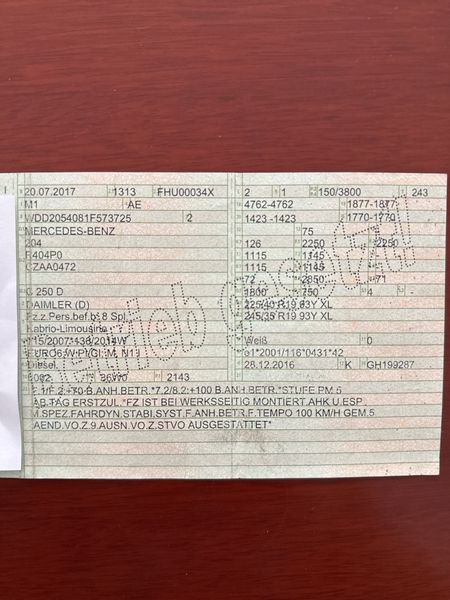 20.07.2017 1313 FHU00034X 2 1 150/3800 243
M1 AE 4762-4762 1877-1877
WDD2054081F573725 2 1423-1423 1770-1770
MERCEDES-BENZ 75
204 126 2250 2250
R404P0 1115 1145
CZAA0472 1115 1145
72 2850 71
C 250 D 1800 750 4 -
DAIMLER (D) 225/40 R19 93Y XL
Fz.z.Pers.bef.b. 8 Spl. 245/35 R19 93Y XL
Kabrio-Limousine
715/2007*136/2014W Weiß 0
EURO6;W;PI/CI;M, N1 I e1*2001/116*0431*42
Diesel 28.12.2016 K GH199287
2143
F.1/F.2:+70 B.ANH.BETR.*7.2/8.2:+100 B.ANH.BETR.*STUFE PM 5
AB TAG ERSTZUL.*FZ IST BEI WERKSSEITIG MONTIERT.AHK U.ESP
M.SPEZ.FAHRDYN.STABI.SYST.F.ANH.BETR.F.TEMPO 100 KM/H GEM.5
AEND.VO.Z.9.AUSN.VO.Z.STVO AUSGESTATTET*